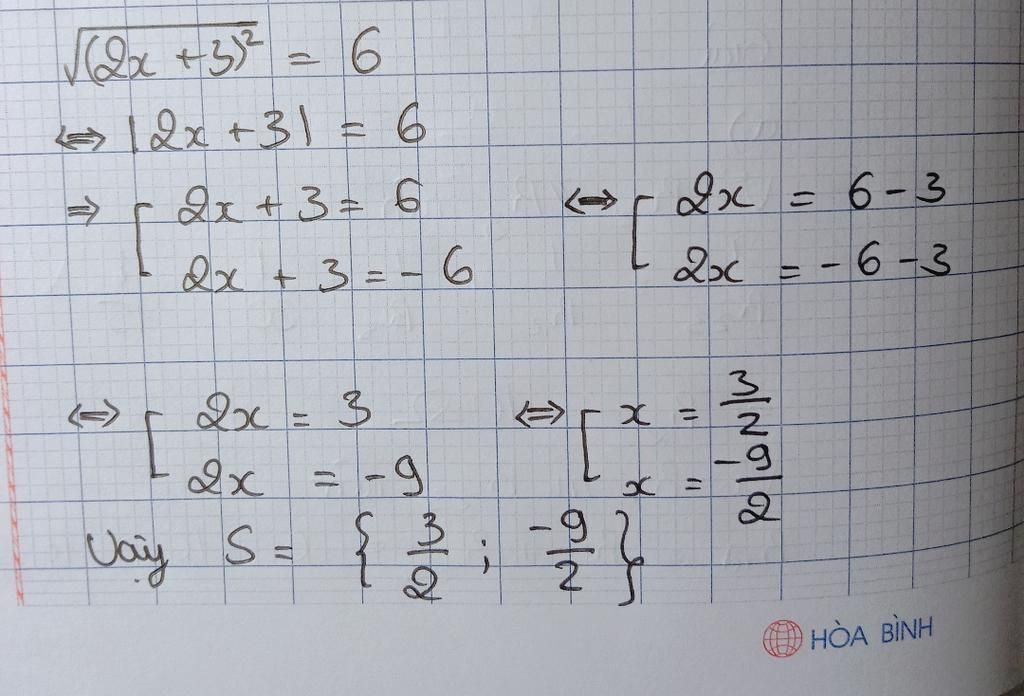 √(2x + 3)² = 6
⇔ |2x + 3| = 6
⇒ [ 2x + 3 = 6
2x + 3 = - 6
⇔ [ 2x = 6 - 3
2x = - 6 - 3
⇔ [ 2x = 3
2x = -9
⇔ [ x = 3/2
x = -9/2
Vậy S = { 3/2 ; -9/2 }
HÒA BÌNH